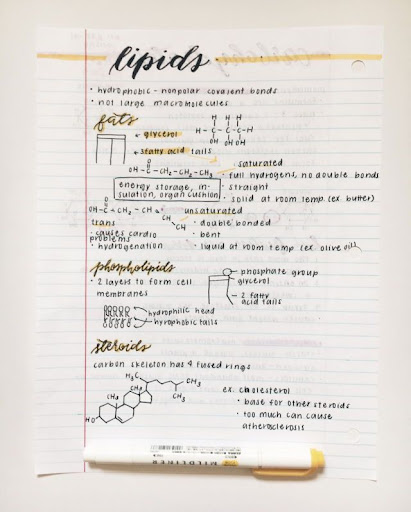 lipids
· hydrophobic - nonpolar covalent bonds
· not large macromolecules
fats
← glycerol
← 3 fatty acid tails
H H H
H-C-C-C-H
OH OH OH
O
OH-C-CH₂-CH₂-CH₃
· saturated
· full hydrogen, no double bonds
· straight
· solid at room temp (ex butter)
energy storage, in-
sulation, organ cushion
O
OH-C-CH₂-CH
CH-CH₃
unsaturated
· double bonded
· bent
· liquid at room temp (ex olive oil)
trans
· causes cardio
problems
· hydrogenation
phospholipids
· 2 layers to form cell
membranes
phosphate group
glycerol
2 fatty
acid tails
hydrophilic head
hyrophobic tails
steroids
carbon skeleton has 4 fused rings
H₃C
CH₃
CH₃
CH₃
CH₃
HO
ex: cholesterol
· base for other steroids
· too much can cause
atherosclerosis
MILDLINER